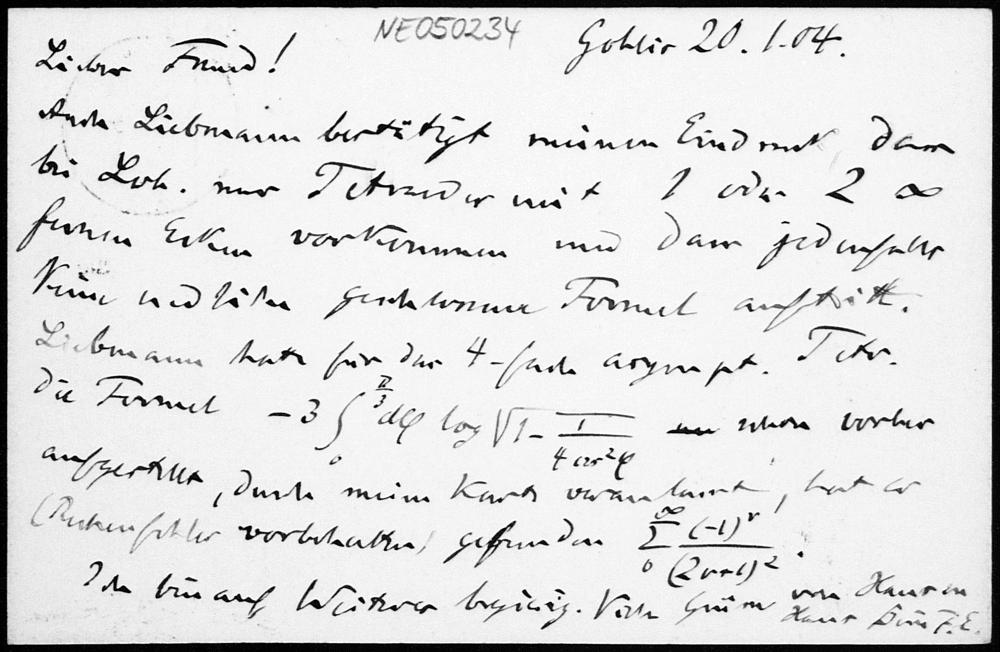 NE050234
Gohlis 20.1.04.
Lieber Freund!
Auch Liebmann bestätigt meinen Eindruck, dass
bei Lob. nur Tetraeder mit 1 oder 2 ∞
fernen Ecken vorkommen und dass jedenfalls
keine nediehen geschlossene Formel auftritt.
Liebmann hatte für das 4-fach asympt. Tetr.
die Formel −3 ∫₀^{π/3} dφ log √(1 − 1/(4 cos²φ)) schon vorher
aufgestellt, durch meine Karte veranlasst, hat er
(Rechenfehler vorbehalten) gefunden ∑₀^∞ (−1)^ν/(2ν+1)².
Ich bin auf Weiteres begierig. Viele Grüsse von Haus zu
Haus Dein F.E.